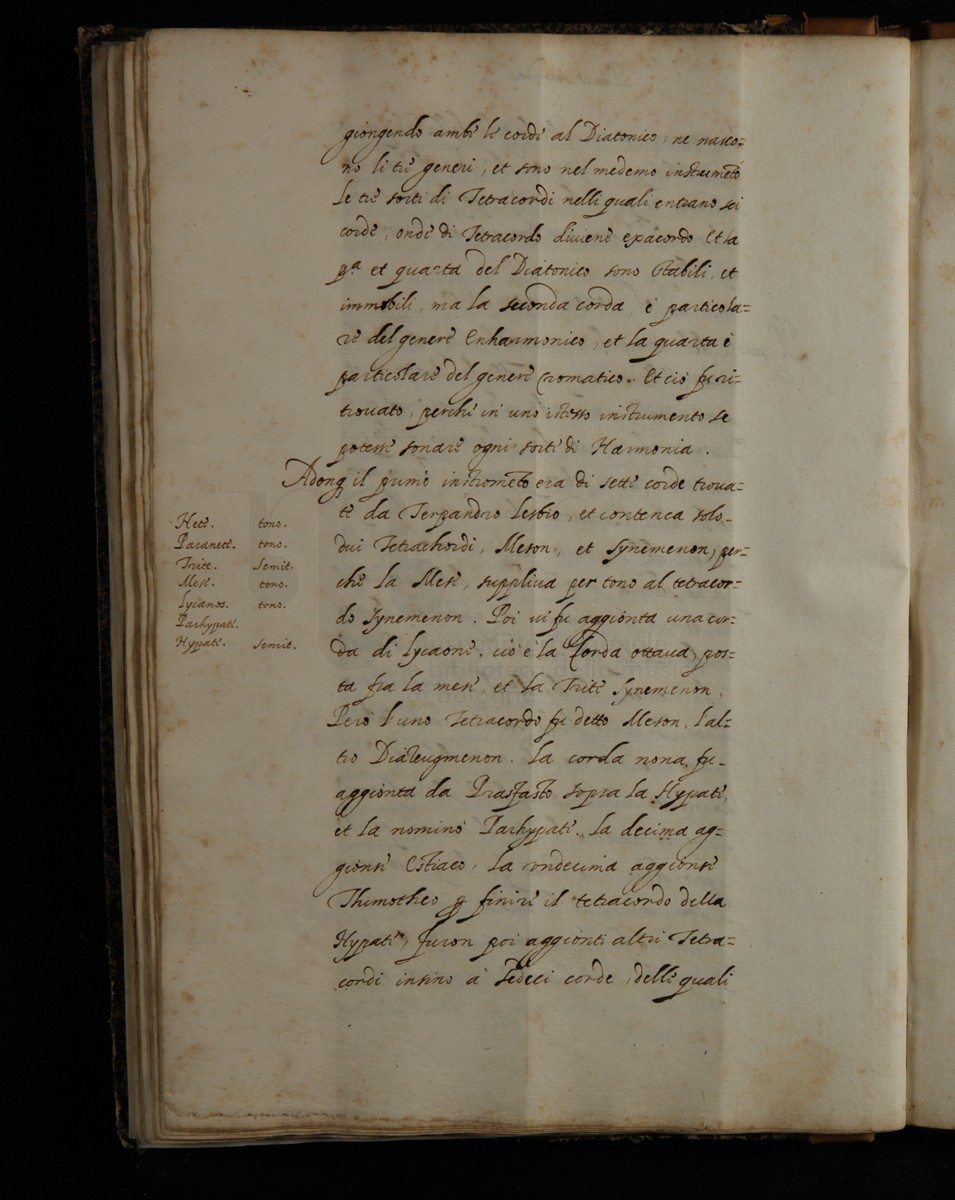 giongendo ambe le corde al Diatonico, ne nasco=
no li tre generi, et sono nel medemo instrumeto
le tre sorti di Tetracordi nelli quali entrano sei
corde, onde di Tetracordo diviene exacordo Et la
pª et quarta del Diatonico sono stabili, et
immobili, ma la seconda corda, è particola=
re del genere Enharmonico, et la quarta è
particolare del genere Cromatico. Et ciò fu ri=
trouato, perche in uno istesso instrumento se
potesse sonare ogni sorte di Harmonia.
Adonq il primo instrometo era di sette corde troua=
te da Terpandro lesbio, et contenea solo
dui Tetrachordi, Meson, et Synemenon, per=
che la Mese, suppliua per tono al tetracor=
do Synemenon. Poi ui fu aggionta una cor=
da di lycaone, ciò è la Corda ottaua, pos=
ta fra la mese, et la Trite Synemenon.
Però l'uno Tetracordo fu detto Meson, l'al=
tro Diazeugmenon. la corda nona, fu
aggionta da Prasfasto sopra la Hypate,
et la nominò Parhypate. la decima ag=
gionse Estiaco, la undecima aggionse
Thimotheo p finire il tetracordo della
Hypate, furon poi aggionti altri Tetra=
cordi insino à sedeci corde, delle quali
Nete. tono.
Paranete. tono.
Trite. Semit.
Mese. tono.
lycanos. tono.
Parhypate.
Hypate. Semit.